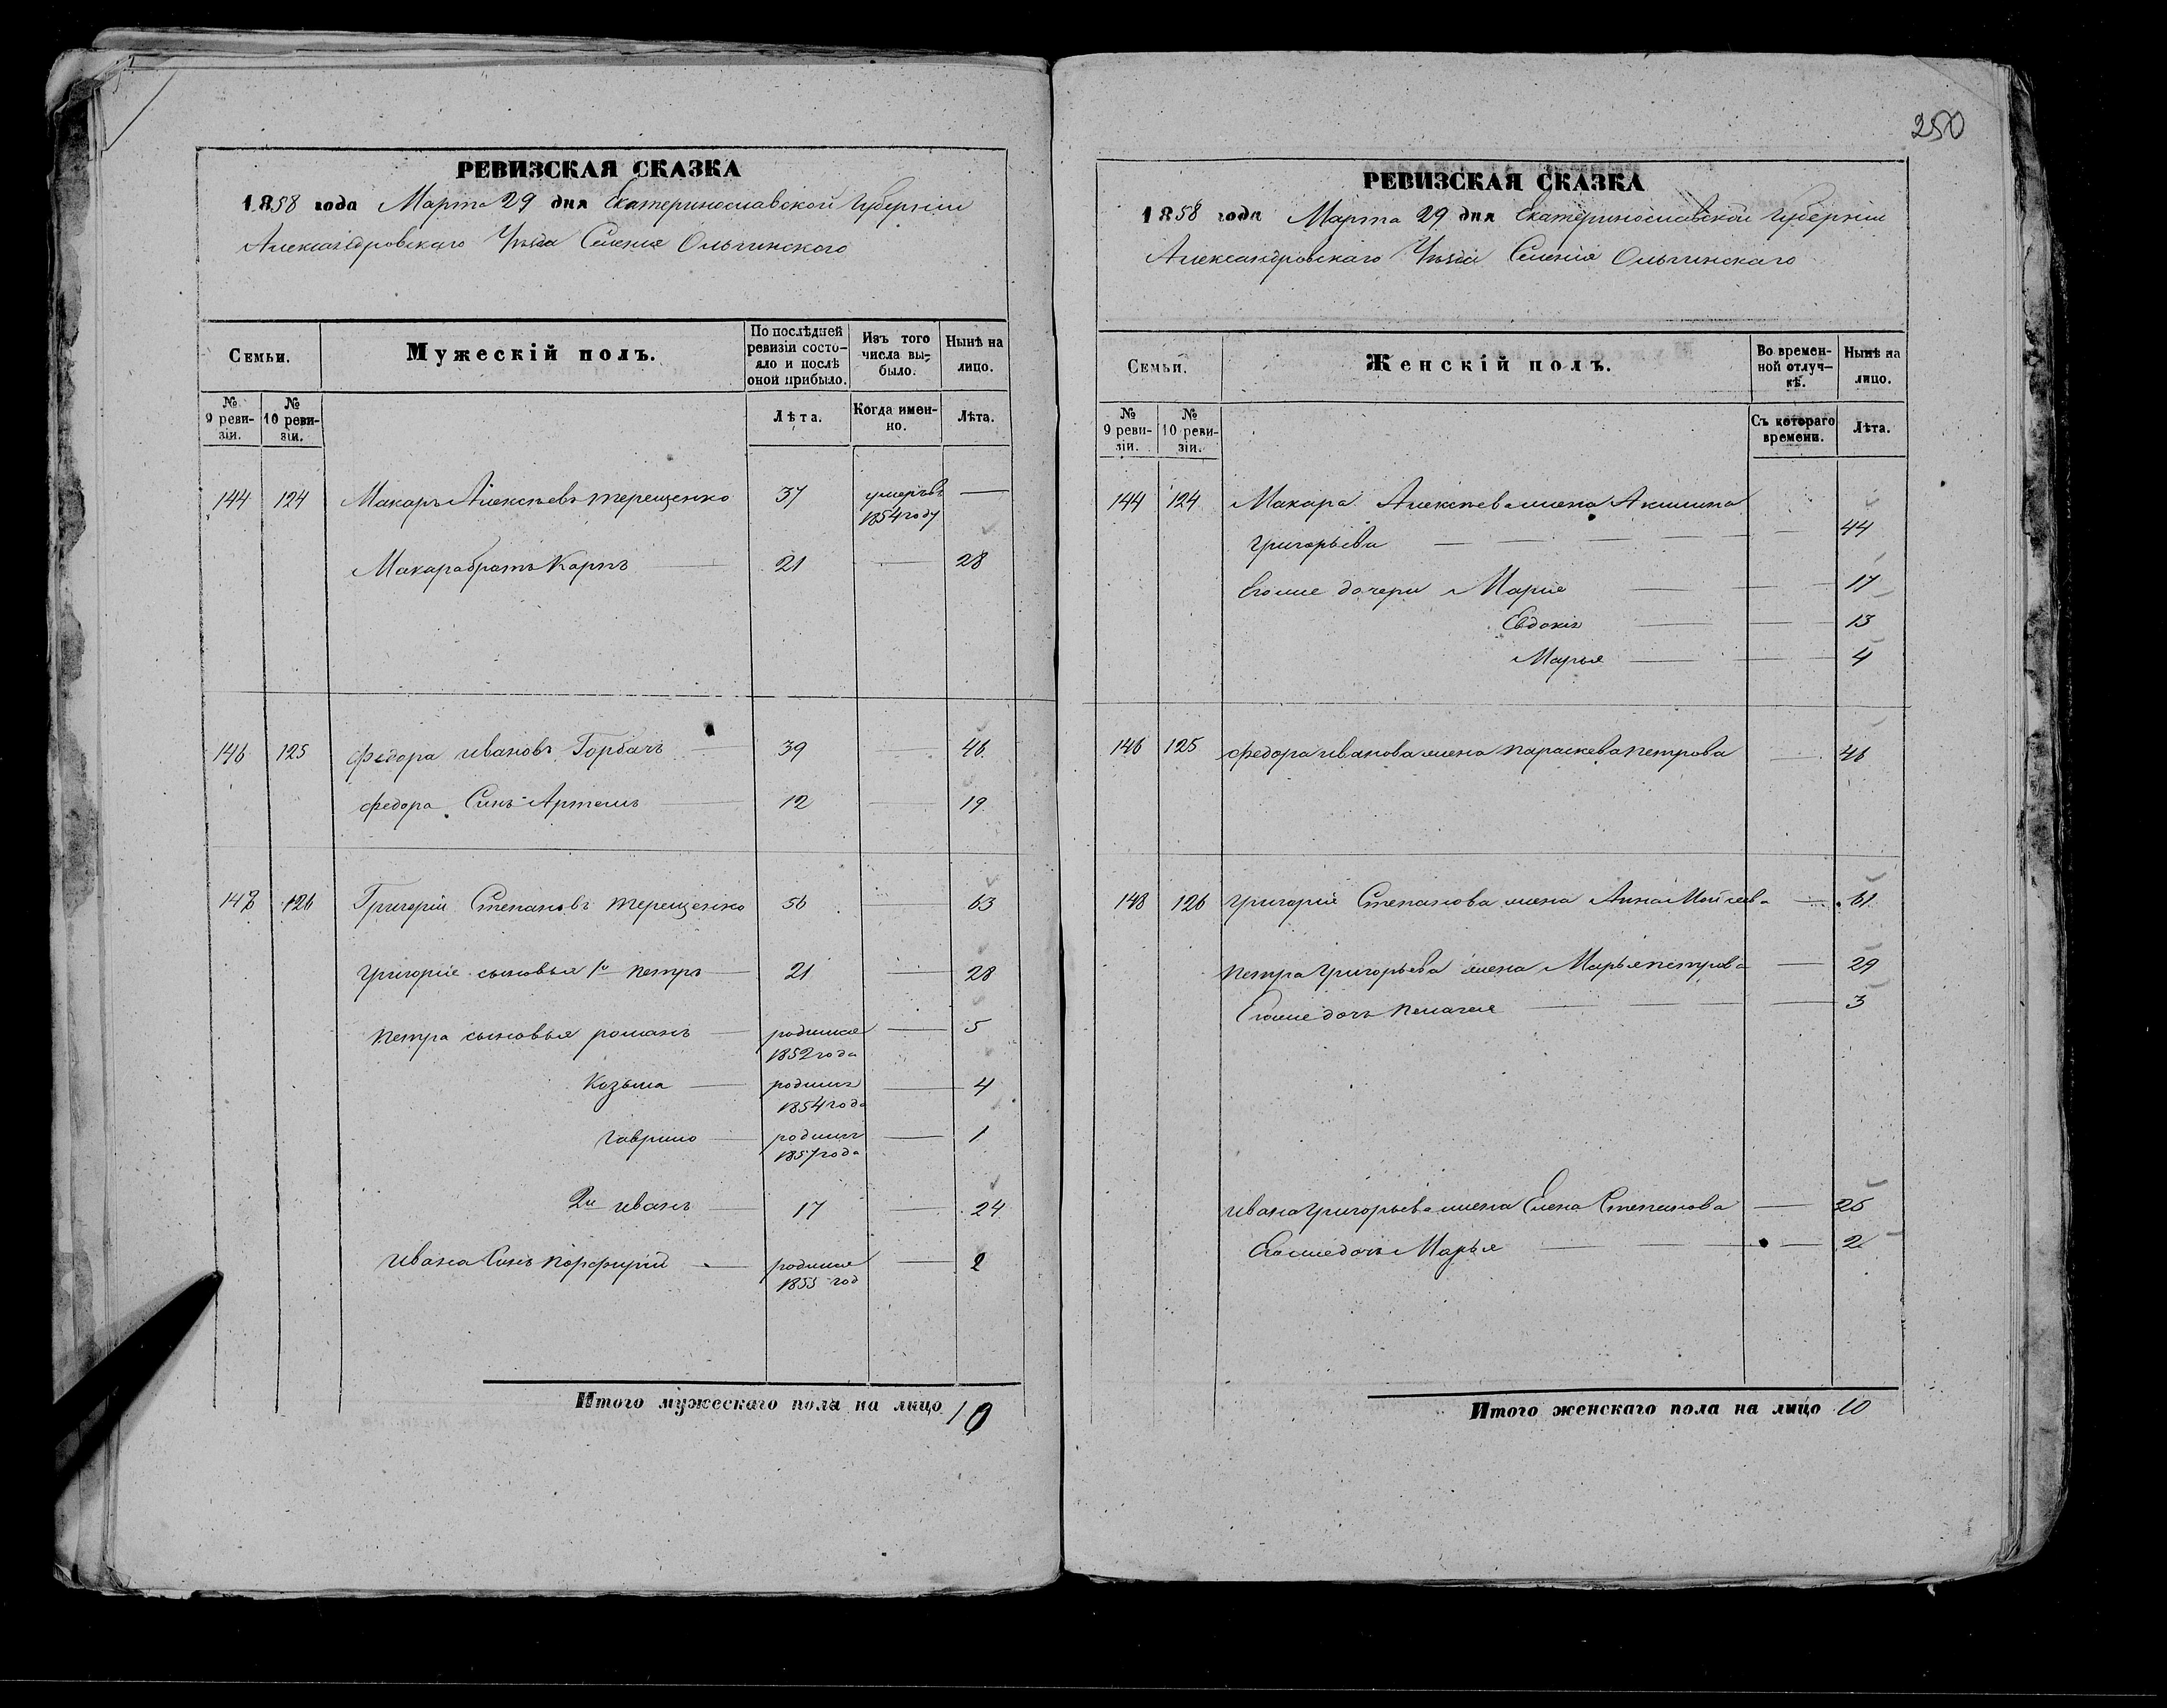 РЕВИЗСКАЯ СКАЗКА
1858 года Марта 29 дня Екатеринославской Губернии
Александровскаго Уѣзда Селения Ольгинскаго
Семьи.
Мужескій полъ.
По послѣдней ревизіи состояло и послѣ оной прибыло.
Изъ того числа выбыло.
Нынѣ на лицо.
№ 9 ревизіи.
№ 10 ревизіи.
Лѣта.
Когда именно.
Лѣта.
144 124 Макаръ Алексѣевъ терещенко 37 умеръ въ —
1854 году
Макара братъ Карпъ — 21 — 28
146 125 Федора ивановъ Горбачъ — 39 — 46
Федора Синъ Артемъ — 12 — 19
148 126 Григорій Степановъ терещенко 56 — 63
Григорія сыновья 1й петръ — 21 — 28
петра сыновья романъ — родился — 5
1852 года
Козьма — родился — 4
1854 года
гаврило — родился — 1
1857 года
2й иванъ — 17 — 24
ивана Синъ порфирій — родился — 2
1855 год
Итого мужескаго пола на лицо 10
250
РЕВИЗСКАЯ СКАЗКА
1858 года Марта 29 дня Екатеринославской Губернии
Александровскаго Уѣзда Селения Ольгинскаго
Семьи.
Женскій полъ.
Во временной отлучкѣ.
Нынѣ на лицо.
№ 9 ревизіи.
№ 10 ревизіи.
Съ котораго времени.
Лѣта.
144 124 Макара Алексѣева жена Акилина
григорьева — — — — — 44
Егоже дочери Мария — — 17
Евдокія — — 13
Марья — — 4
146 125 Федора иванова жена параскева петрова — 46
148 126 григорія Степанова жена Анна Мойсеева — 61
петра григорьева жена Марья петрова — 29
Егоже дочь пелагея — — — — 3
ивана григорьева жена Елена Степанова — 25
Егоже дочь Марья — — — — 2
Итого женскаго пола на лицо 10